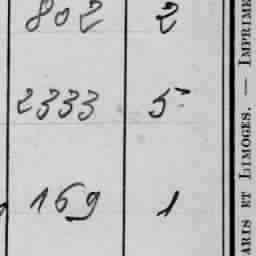 802 2
2333 5
169 1
ARIS ET LIMOGES. — IMPRIME